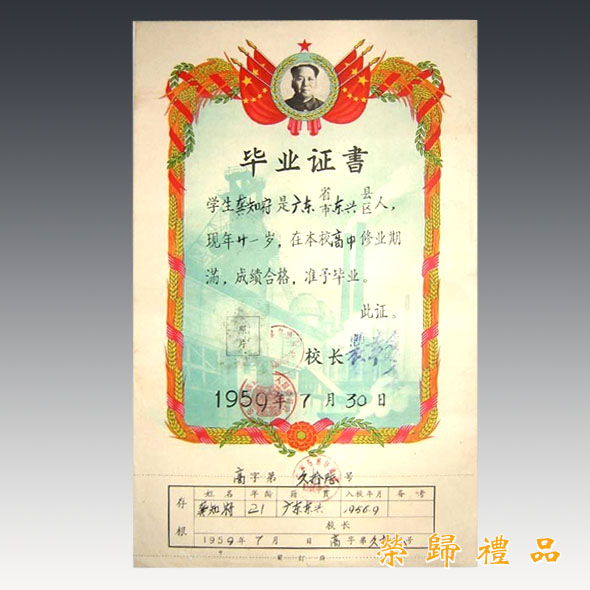 毕业证書
学生龚知府是广东省市东兴县区人，
现年廿一岁，在本校高中修业期
满，成绩合格，准予毕业。
此证。
照片
校长
1959年7月30日
高字第久拾陆号
存根
姓名 年龄 籍贯 入校年月 备考
龚知府 21 广东东兴 1956.9
校长
1959年7月 日 高字第 号
榮歸禮品